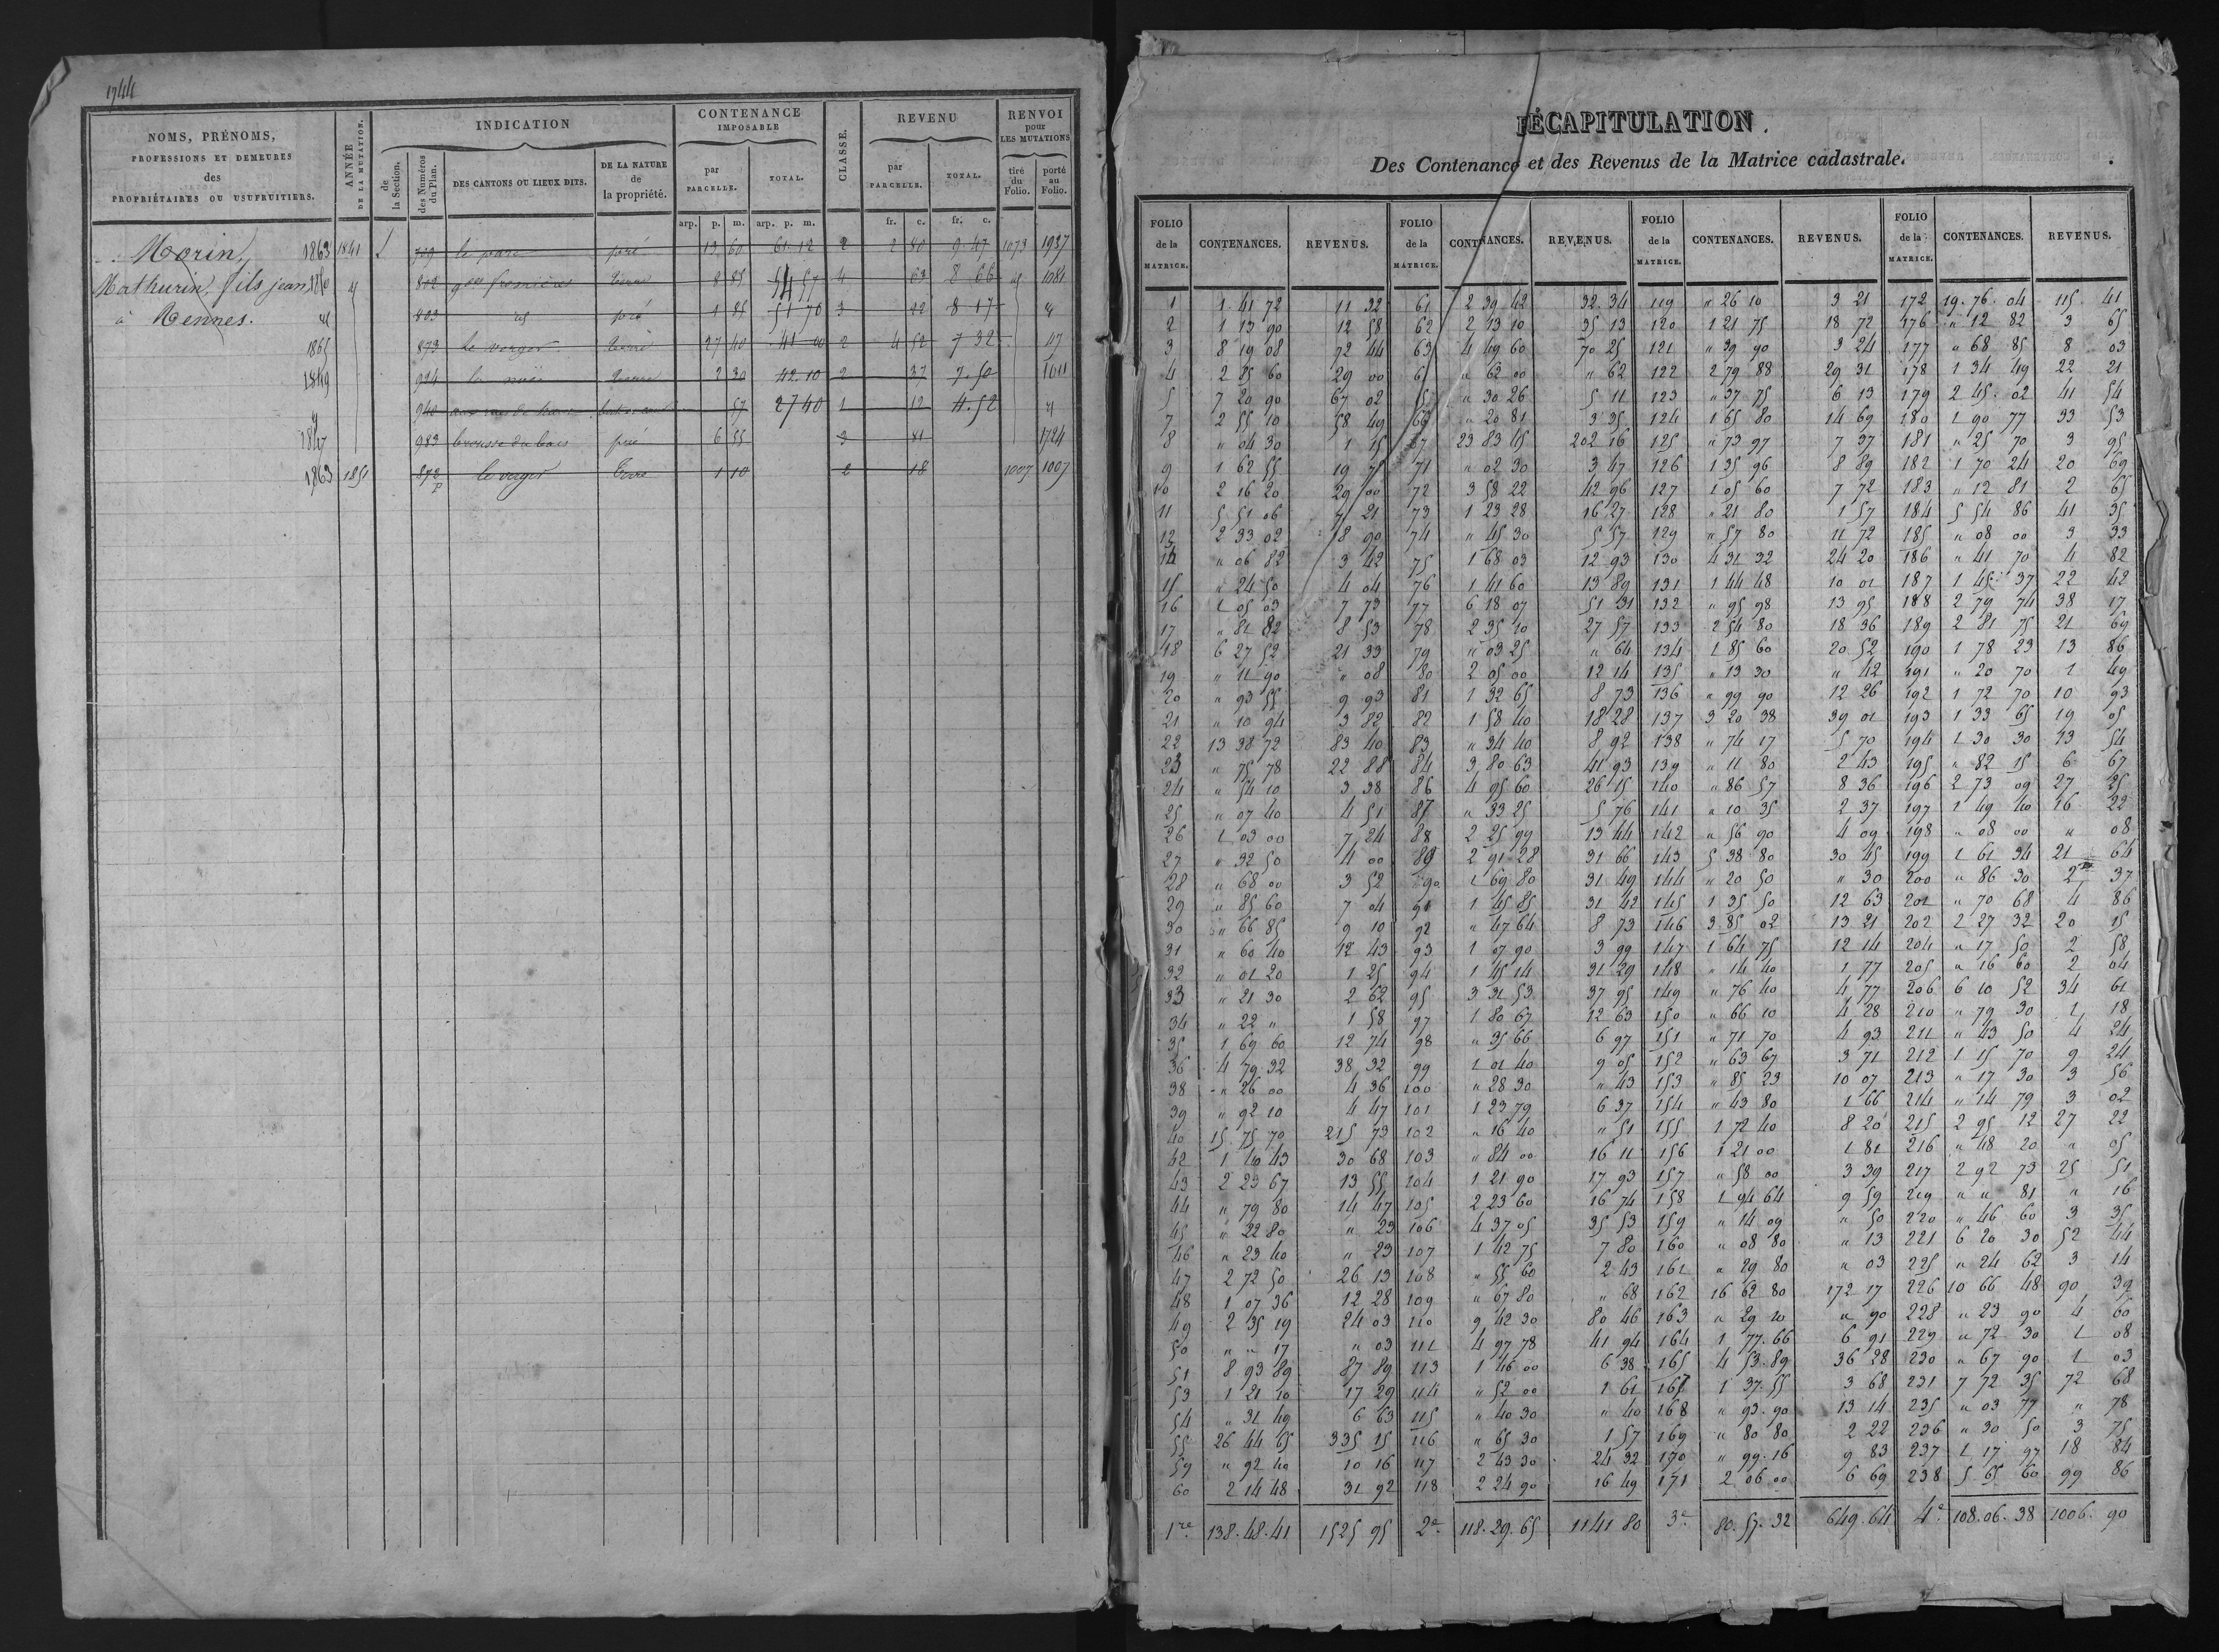 1744
NOMS, PRÉNOMS,
PROFESSIONS ET DEMEURES
des
PROPRIÉTAIRES OU USUFRUITIERS.
ANNÉE
DE LA MUTATION.
INDICATION
de
la Section.
des Numéros
du Plan.
DES CANTONS OU LIEUX DITS.
DE LA NATURE
de
la propriété.
CONTENANCE
IMPOSABLE
par
PARCELLE.
TOTAL.
CLASSE.
REVENU
par
PARCELLE.
TOTAL.
RENVOI
pour
LES MUTATIONS
tiré
du
Folio.
porté
au
Folio.
arp. p. m. arp. p. m. fr. c. fr. c.
Morin, 1863 1841 L le parc pré 13 60 61 12 2 2 80 9 47 1073 1937
Mathurin, fils jean 812 8 85 4 63 8 66 1081
à Rennes. 803 pré 1 85 51 70 3 42 8 17
1865 873 le verger 27 40 41 00 2 4 52 7 32
1849 924 la 2 30 42 10 2 37 7 50 1611
940 57 27 40 1 12 4 52
1847 983 brousse du bois pré 6 55 3 81 1724
1863 1851 872 p le verger Terre 1 10 2 18 1007 1007
RÉCAPITULATION.
Des Contenance et des Revenus de la Matrice cadastrale.
FOLIO de la MATRICE. CONTENANCES. REVENUS. FOLIO de la MATRICE. CONTENANCES. REVENUS. FOLIO de la MATRICE. CONTENANCES. REVENUS. FOLIO de la MATRICE. CONTENANCES. REVENUS.
1 1 41 72 11 32 61 2 39 42 32 34 119 " 26 10 3 21 172 19 76 04 115 41
2 1 13 90 12 58 62 2 13 10 35 13 120 1 21 75 18 72 176 " 12 82 3 65
3 8 19 08 72 44 63 4 49 60 70 25 121 " 39 90 3 24 177 " 68 85 8 03
4 2 25 60 29 00 " 62 00 " 62 122 2 79 88 29 31 178 1 34 49 22 21
5 7 20 90 67 02 " 30 26 5 11 123 " 37 75 6 13 179 2 45 02 41 54
7 2 55 10 58 49 66 " 20 81 3 35 124 1 65 80 14 69 180 1 90 77 33 53
8 " 04 30 1 15 23 83 45 202 16 125 " 73 97 7 37 181 " 25 70 3 95
9 1 62 55 71 " 02 30 3 47 126 1 35 96 8 89 182 1 70 24 20 69
10 2 16 20 29 00 72 3 58 22 42 96 127 1 05 60 7 72 183 " 12 81 2 65
11 5 51 06 73 1 23 28 16 27 128 " 21 80 1 57 184 5 54 86 41 35
12 2 33 02 18 90 74 " 45 30 5 57 129 " 57 80 11 72 185 " 08 00 3 33
14 " 06 82 3 42 75 1 68 03 12 93 130 4 31 32 24 20 186 " 41 70 4 82
15 " 24 50 4 04 76 1 41 60 13 89 131 1 44 48 10 01 187 1 45 37 22 42
16 1 05 03 7 73 77 6 18 07 51 31 132 " 95 98 13 95 188 2 79 74 38 17
17 " 81 82 8 53 78 2 35 10 27 57 133 2 54 80 18 36 189 2 81 75 21 69
18 6 27 52 21 33 79 " 03 25 " 64 134 1 85 60 20 52 190 1 78 23 13 86
19 " 11 90 " 08 80 2 05 00 12 14 135 " 13 30 " 42 191 " 20 70 1 49
20 " 93 55 9 93 81 1 32 65 8 73 136 " 99 90 12 26 192 1 72 70 10 93
21 " 10 94 3 82 82 1 58 40 18 28 137 3 20 38 39 01 193 1 33 65 19 05
22 13 38 72 83 40 83 " 34 40 8 92 138 " 74 17 5 70 194 1 30 30 13 54
23 " 75 78 22 88 84 3 80 63 41 93 139 " 11 80 2 43 195 " 82 15 6 67
24 " 54 10 3 38 86 4 95 60 26 15 140 " 86 57 8 36 196 2 73 09 27 25
25 " 07 40 4 51 87 " 33 25 5 76 141 " 10 35 2 37 197 1 49 40 16 22
26 1 03 00 7 24 88 2 25 99 13 44 142 " 56 90 4 09 198 " 08 00 " 08
27 " 32 50 4 00 89 2 91 28 31 66 143 5 38 80 30 45 199 1 61 34 21 64
28 " 68 00 3 52 90 1 69 80 31 49 144 " 20 50 " 30 200 " 86 30 2 37
29 " 85 60 7 04 91 1 45 85 31 42 145 1 35 50 12 63 201 " 70 68 4 86
30 " 66 85 9 10 92 " 47 64 8 73 146 3 85 02 13 21 202 2 27 32 20 15
31 " 60 40 12 43 93 1 07 90 3 99 147 1 64 75 12 14 204 " 17 50 2 58
32 " 01 20 1 25 94 1 45 14 31 29 148 " 14 40 1 77 205 " 16 60 2 04
33 " 21 30 2 62 95 3 31 53 37 95 149 " 76 40 4 77 206 6 10 52 34 61
34 " 22 " 1 58 97 1 80 67 12 63 150 " 66 10 4 28 210 " 79 30 1 18
35 1 69 60 12 74 98 " 35 66 6 97 151 " 71 70 4 93 211 " 43 50 4 24
36 4 79 32 38 32 99 1 01 40 9 05 152 " 63 67 3 71 212 1 15 70 9 24
38 " 26 00 4 36 100 " 28 30 " 43 153 " 85 23 10 07 213 " 17 30 3 56
39 " 92 10 4 47 101 1 23 79 6 37 154 " 43 80 1 66 214 " 14 79 3 02
40 15 75 70 215 73 102 " 16 40 " 51 155 1 72 40 8 20 215 2 95 12 27 22
42 1 40 43 30 68 103 " 84 00 16 11 156 1 21 00 1 81 216 " 48 20 " 05
43 2 23 67 13 55 104 1 21 90 17 93 157 " 58 00 3 39 217 2 92 73 25 51
44 " 79 80 14 47 105 2 23 60 16 74 158 1 94 64 9 59 219 " " 81 " 16
45 " 22 80 " 23 106 4 37 05 35 53 159 " 14 09 " 50 220 " 46 60 3 35
46 " 23 40 " 23 107 1 42 75 7 80 160 " 08 80 " 13 221 6 20 30 52 44
47 2 72 50 26 13 108 " 55 60 2 43 161 " 29 80 " 03 225 " 24 62 3 14
48 1 07 36 12 28 109 " 67 80 " 68 162 16 62 80 172 17 226 10 66 48 90 39
49 2 35 19 24 03 110 9 42 30 80 46 163 " 29 10 " 90 228 " 23 90 4 60
50 " " 17 " 03 111 4 97 78 41 94 164 1 77 66 6 91 229 " 72 30 1 08
51 8 93 89 87 89 113 1 46 00 6 38 165 4 53 89 36 28 230 " 67 90 1 03
53 1 21 10 17 29 114 " 52 00 1 61 1 37 55 3 68 231 7 72 35 72 68
54 " 31 49 6 63 115 " 40 30 " 40 168 " 93 90 13 14 235 " 03 77 " 78
55 26 44 65 335 15 116 " 65 30 1 57 169 " 80 80 2 22 236 " 30 50 3 75
59 " 92 40 10 16 117 2 43 30 24 32 170 " 99 16 9 83 237 1 17 97 18 84
60 2 14 48 31 92 118 2 24 90 16 49 171 2 06 00 6 69 238 5 65 60 99 86
1re 138.48.41 1525 95 2e 118.29.65 1141 80 3e 80.57.32 649.64 4e 108.06.38 1006.90